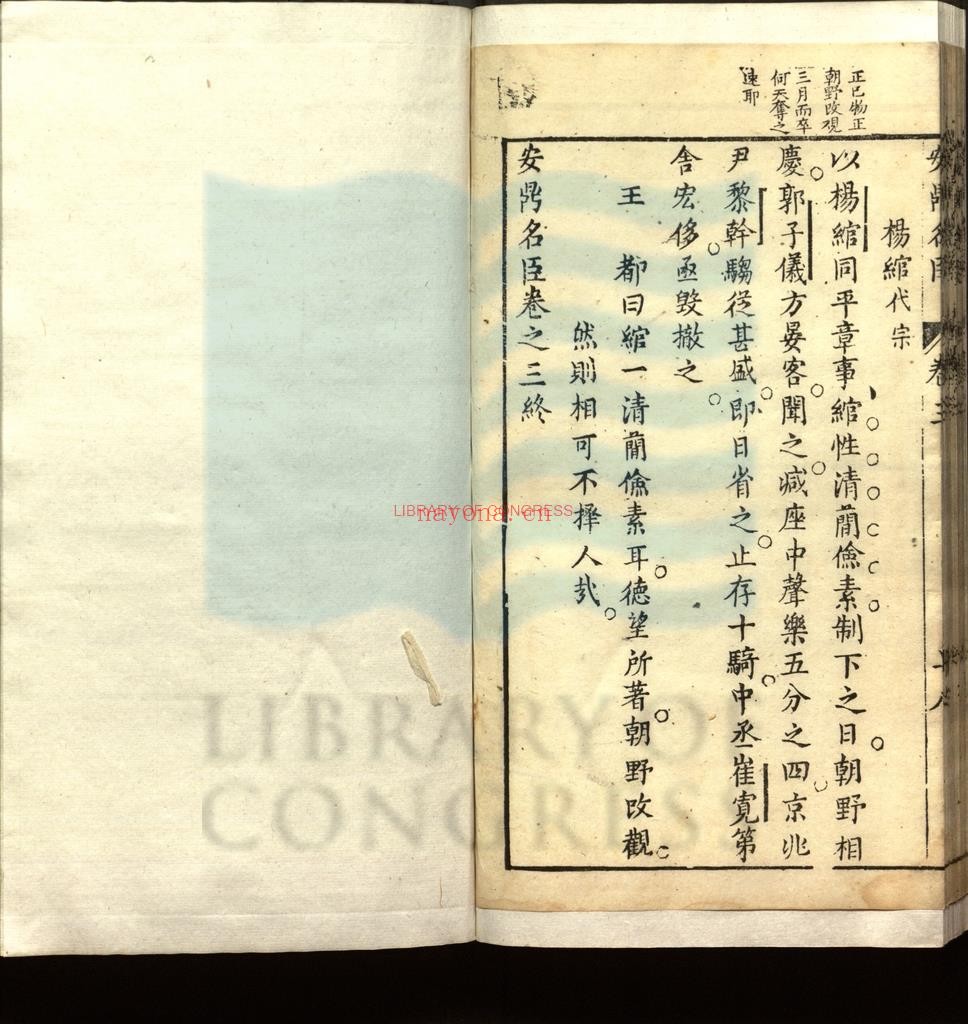 正已物正
朝野改觀
三月而卒
何天奪之
速耶
安鼎名臣 卷三 十八
楊綰代宗
以楊綰同平章事綰性清蕳儉素制下之日朝野相
慶郭子儀方晏客聞之减座中聲樂五分之四京兆
尹黎幹騶從甚盛即日省之止存十騎中丞崔寬第
舍宏侈亟毀撤之
王都曰綰一清蕳儉素耳德望所著朝野改觀
然則相可不擇人哉
安鼎名臣卷之三終
LIBRARY OF CONGRESS
nayona.cn
LIBRARY OF
CONGRESS